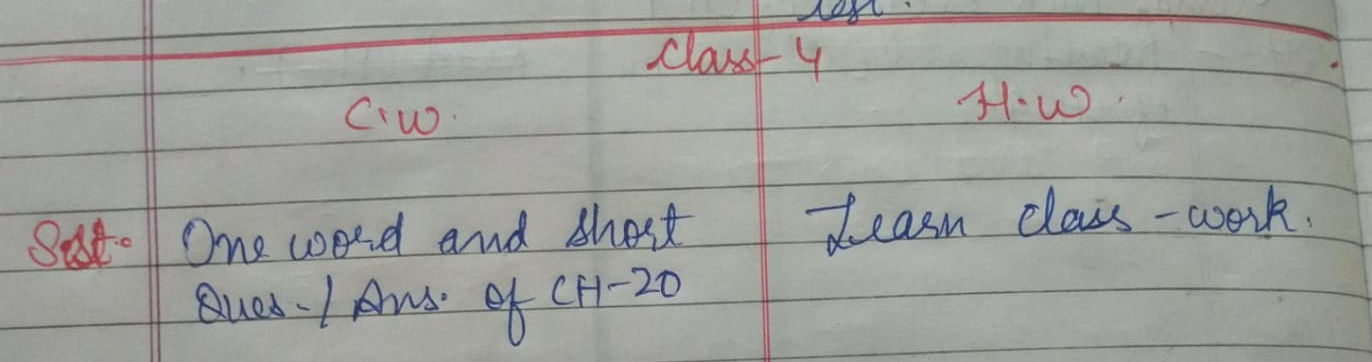 test.
Class-4
C.W.
H.W.
S.St. One word and short
Learn class-work.
Ques./Ans. of CH-20